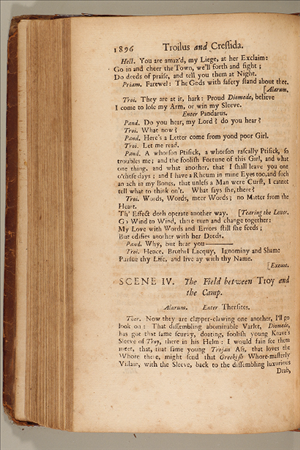 1896 Troilus and Cressida.
Hect. You are amaz'd, my Liege, at her Exclaim:
Go in and cheer the Town, we'll forth and fight;
Do deeds of praise, and tell you them at Night.
Priam. Farewel: The Gods with safety stand about thee.
[Alarum.
Troi. They are at it, hark: Proud Diomede, believe
I come to lose my Arm, or win my Sleeve.
Enter Pandarus.
Pand. Do you hear, my Lord? do you hear?
Troi. What now?
Pand. Here's a Letter come from yond poor Girl.
Troi. Let me read.
Pand. A whorson Ptisick, a whorson rascally Ptisick, so
troubles me; and the foolish Fortune of this Girl, and what
one thing, and what another, that I shall leave you one
o'these days; and I have a Rheum in mine Eyes too, and such
an ach in my Bones, that unless a Man were Curst, I cannot
tell what to think on't. What says she, there?
Troi. Words, Words, meer Words; no Matter from the
Heart.
Th' Effect doth operate another way. [Tearing the Letter.
Go Wind to Wind, there turn and change together:
My Love with Words and Errors still she feeds;
But edifies another with her Deeds.
Pand. Why, but hear you——
Troi. Hence, Brothel Lacquy, Ignominy and Shame
Pursue thy Life, and live ay with thy Name.
[Exeunt.
SCENE IV. The Field between Troy and
the Camp.
Alarum. Enter Thersites.
Ther. Now they are clapper-clawing one another, I'll go
look on: That dissembling abominable Varlet, Diomede,
has got that same scurvy, doating, foolish young Knave's
Sleeve of Troy, there in his Helm: I would fain see them
meet, that, that same young Trojan Ass, that loves the
Whore there, might send that Greekish Whore-masterly
Villain, with the Sleeve, back to the dissembling luxurious
Drab,